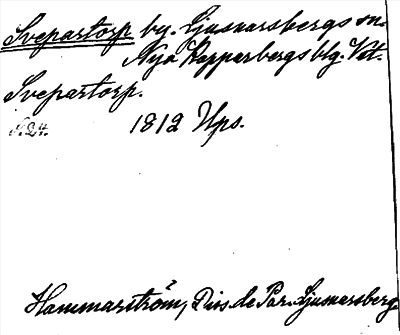 Svepartorp by. Ljusnarsbergs sn.
Nya Kopparbergs blg. Vst.
Svepartorp.
s. 24.
1812 Ups.
Hammarström, Diss. de Par. Ljusnarsberg.